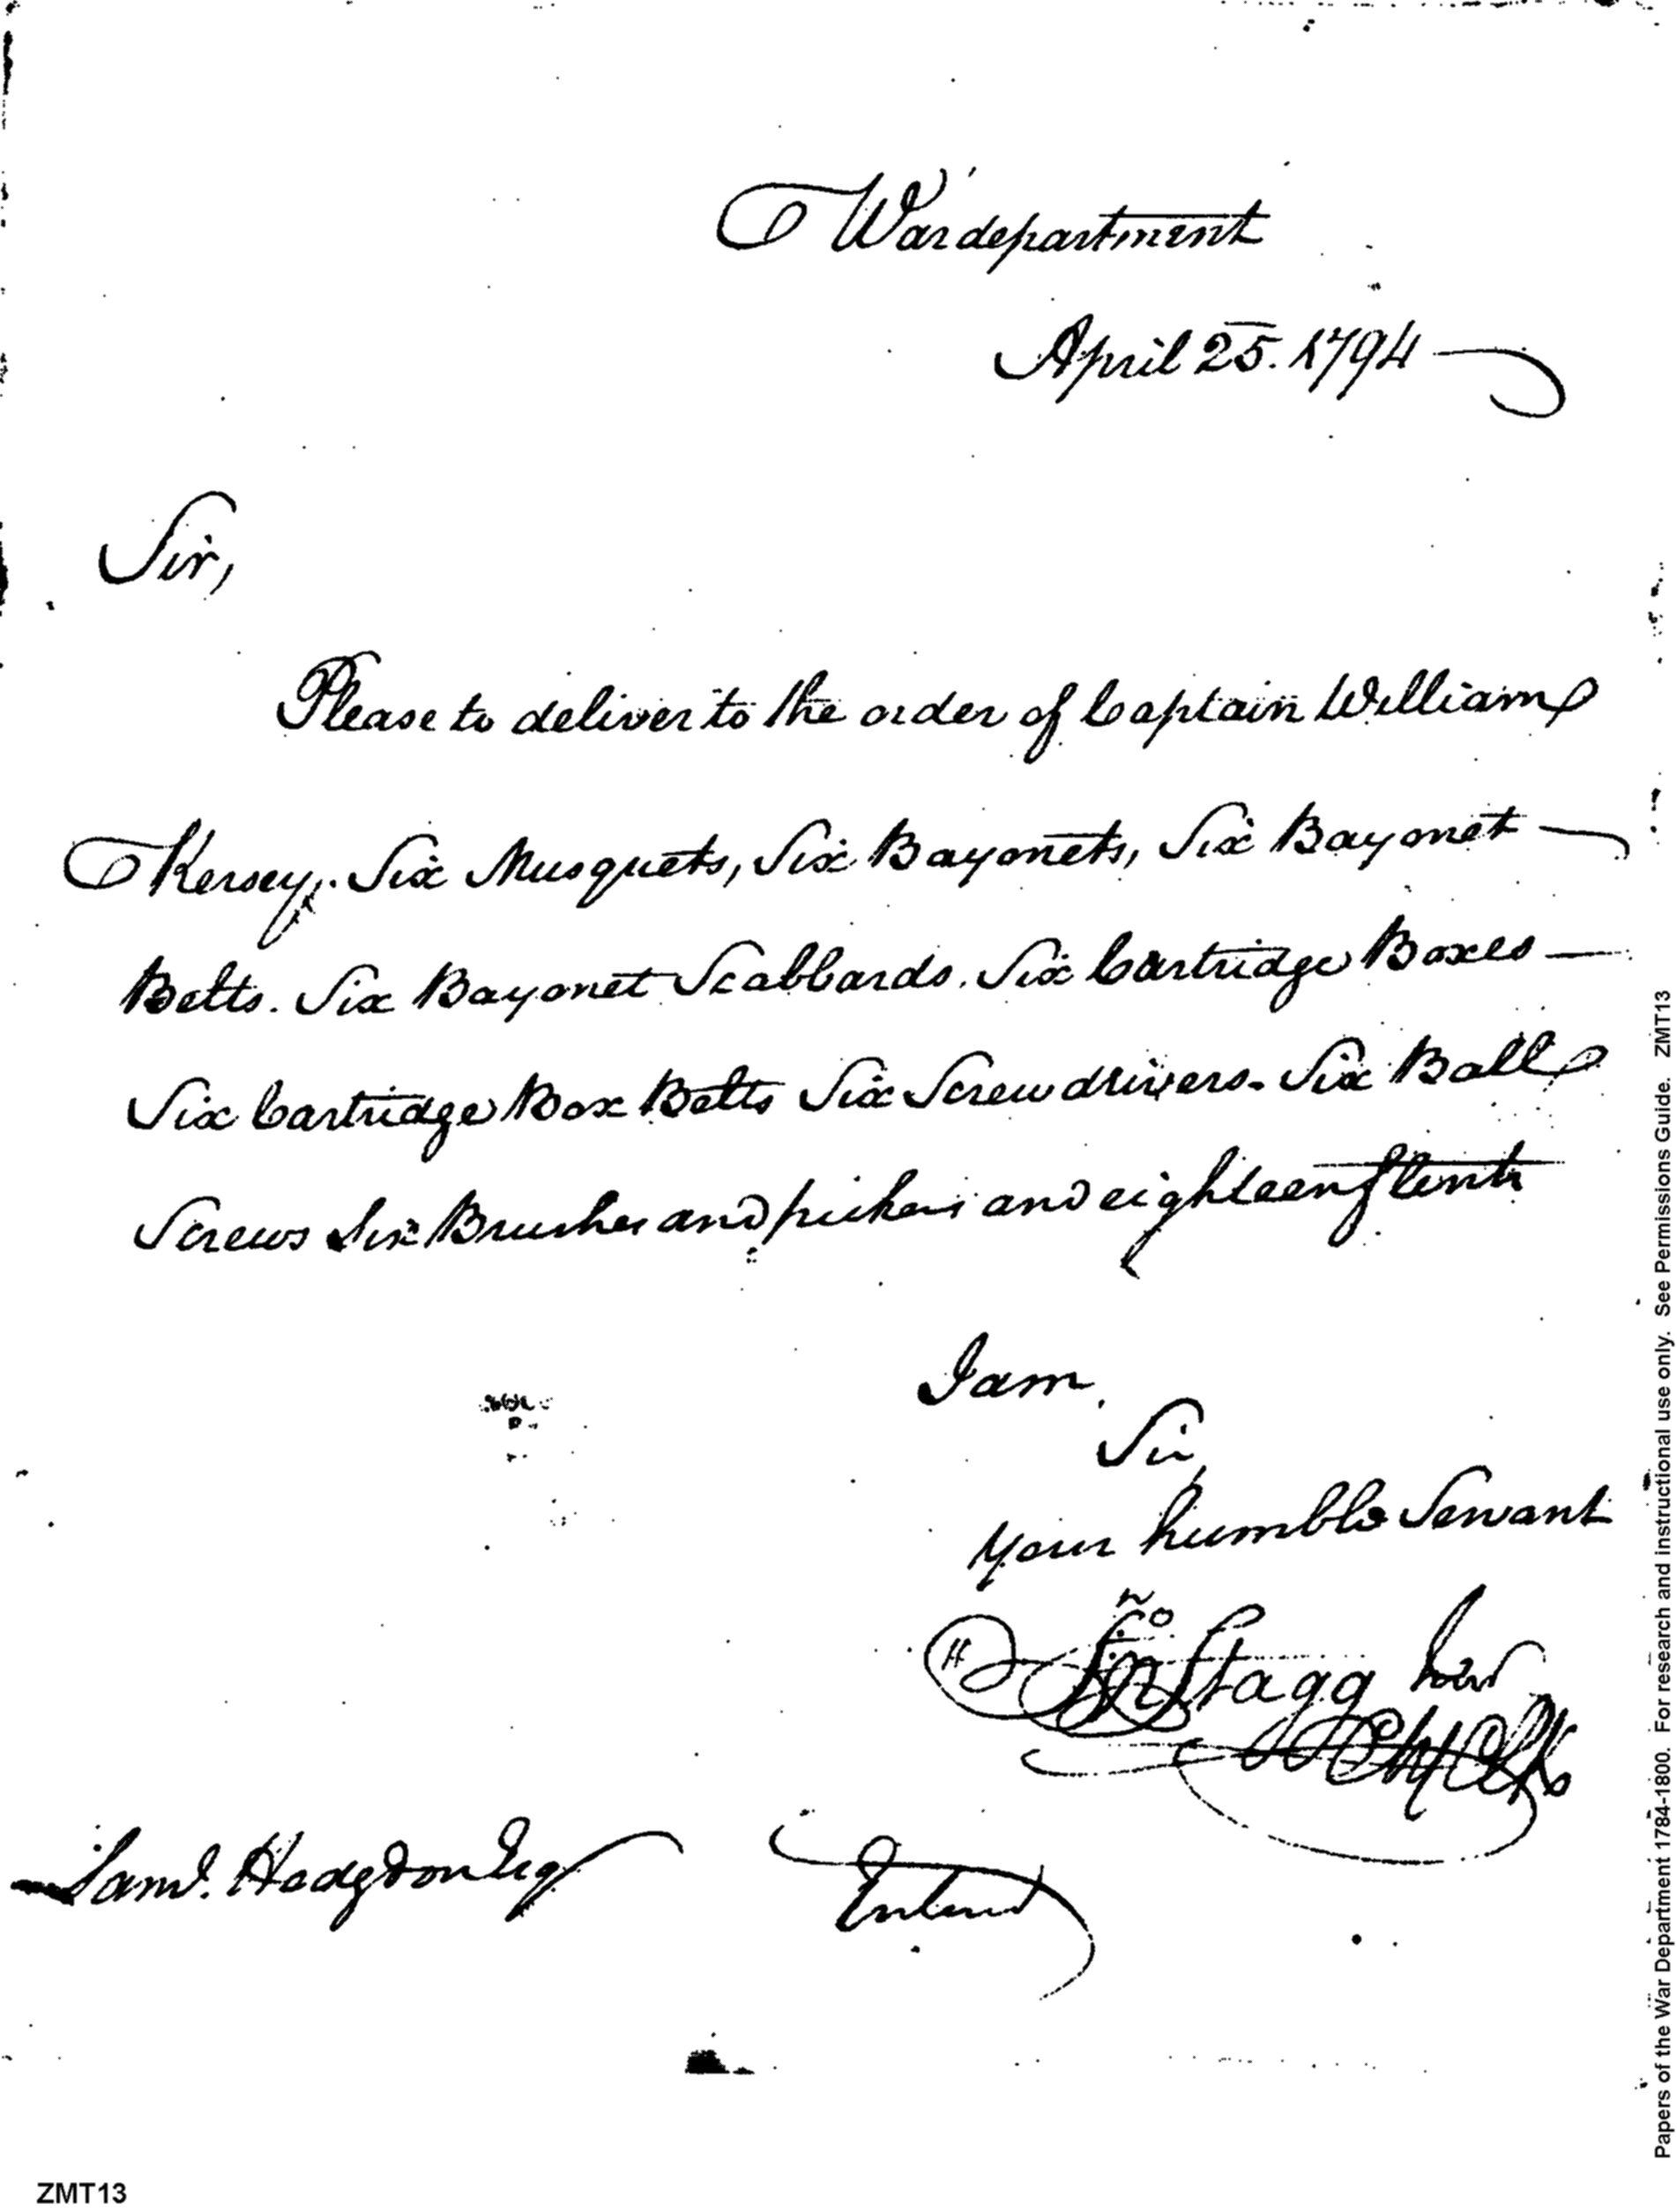 War department
April 25. 1794
Sir,
Please to deliver to the order of Captain William
Kersey. Six Musquets, Six Bayonets, Six Bayonet
Belts. Six Bayonet Scabbards. Six Cartridge Boxes
Six Cartridge Box Belts Six Screw drivers. Six Ball
Screws Six Brushes and pickers and eighteen flints
I am
Sir,
your humble Servant
Jno Stagg Junr
Chf Clk
Saml. Hodgdon Esq
Intend
Papers of the War Department 1784-1800. For research and instructional use only. See Permissions Guide. ZMT13
ZMT13